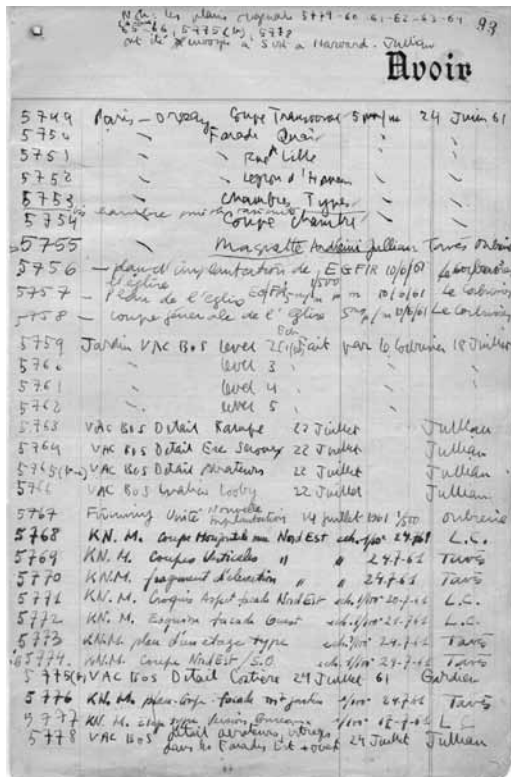 N.B.: les plans originals 5759-60-61-62-63-64
65-66, 5775(bis), 5778
ont été envoyés à Sert à Harvard. Jullian
93
Avoir
5749 Paris-Orsay Coupe Transversal 5 m/m 24 Juin 61
5750 " Façade Quai " "
5751 " " Rue Lille " "
5752 " " Legion d'Honneur " "
5753 " Chambres Types " "
5754 " Coupe Chambre " "
5755 " Maquette Andreini Jullian Tavès Oubrerie
5756 — plan d'implantation de l'église EGFIR 1/500 10/6/61 Le Corbusier
5757 — Plan de l'église EGFIR 10/6/61 Le Corbusier
5758 — coupe générale de l'église 5 m/m 10/6/61 Le Corbusier
5759 Jardin VAC BOS level 2 fait par Le Corbusier 18 Juillet
5760 " level 3 " "
5761 " level 4 " "
5762 " level 5 " "
5763 VAC BOS Détail Rampe 22 Juillet Jullian
5764 VAC BOS Detail Esc Secours 22 Juillet Jullian
5765 (bis) VAC BOS Detail Aerateurs 22 Juillet Jullian
5766 VAC BOS Lobby 22 Juillet Jullian
5767 Firminy Unité Nouvelle implantation 14 juillet 1961 1/500 Oubrerie
5768 KN. M. Coupe Horizontale Nord Est ech. 1/100 24.7.61 L.C.
5769 KN. M. Coupes Verticales " " 24.7.61 Tavès
5770 KN.M. fragment d'élévation " " 24.7.61 Tavès
5771 KN. M. Croquis Aspect facade Nord Est ech. 1/100 L.C.
5772 KN. M. Esquisse facade Ouest ech. 1/100 L.C.
5773 KN.M. plan d'un etage type ech. 1/100 24.7.61 Tavès
5774 KN.M. Coupe Nord Est / S.O. ech. 1/100 Tavès
5775(b) VAC BOS Détail Costière 24 Juillet 61 Gardien
5776 KN. M. plan-coupe-facade 1/100 24.7.61 Tavès
5777 KN. M. 1/100 L C
5778 VAC BOS détail aerateurs, vitrages
dans les Façades Est + ouest 24 Juillet Jullian